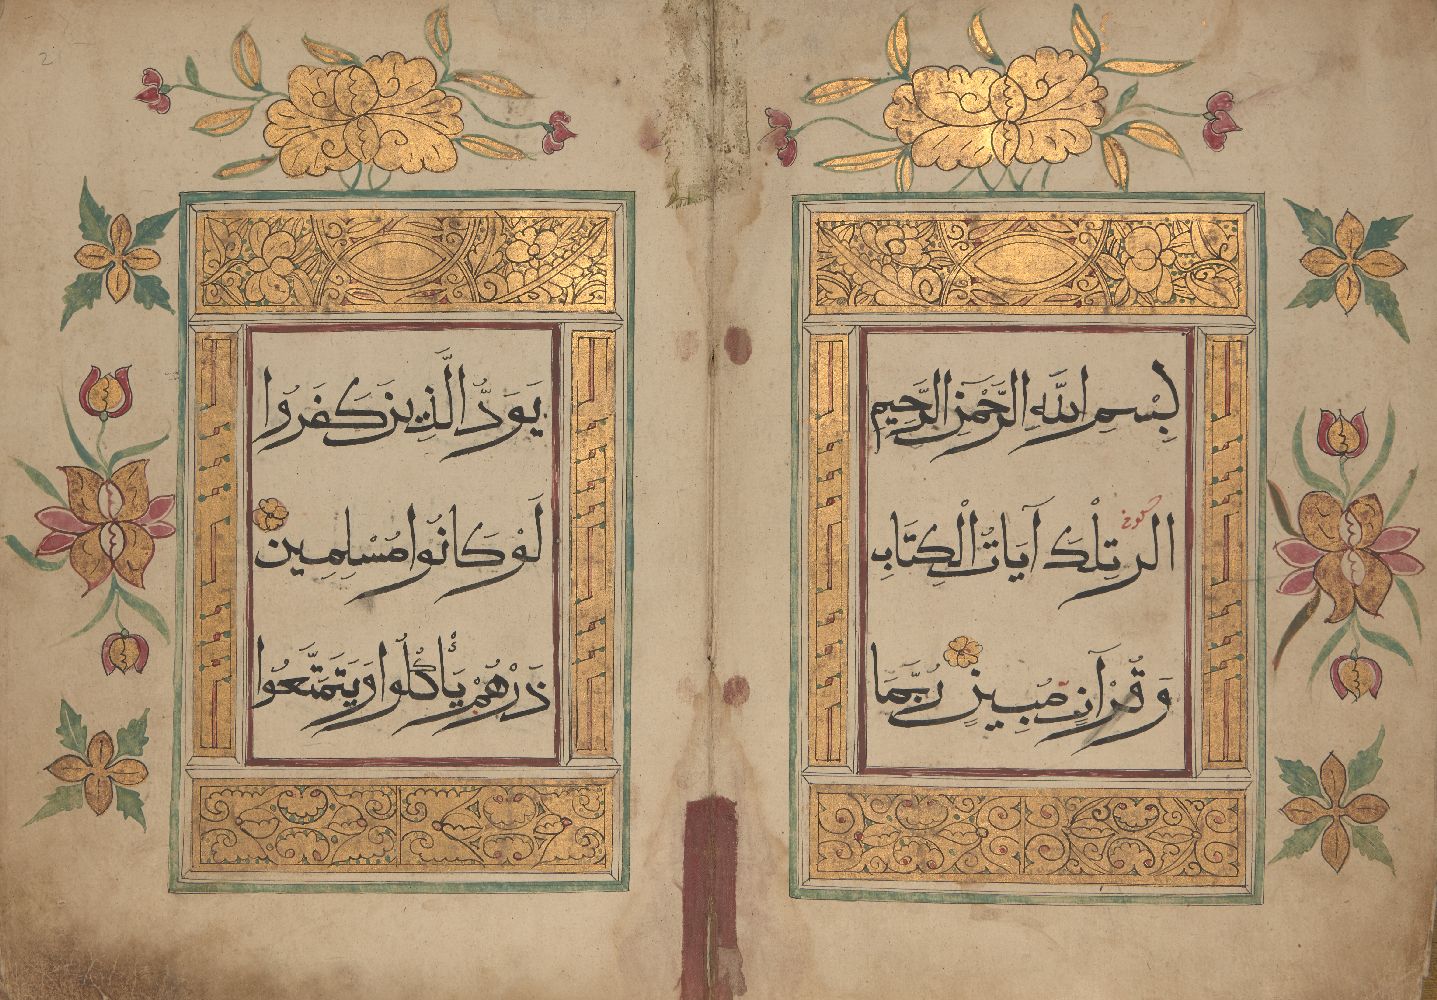 بِسْمِ اللَّهِ الرَّحْمَنِ الرَّحِيمِ
الر تِلْكَ آيَاتُ الْكِتَابِ
وَقُرْآنٍ مُّبِينٍ رُبَمَا
يَوَدُّ الَّذِينَ كَفَرُوا
لَوْ كَانُوا مُسْلِمِينَ
ذَرْهُمْ يَأْكُلُوا وَيَتَمَتَّعُوا
2